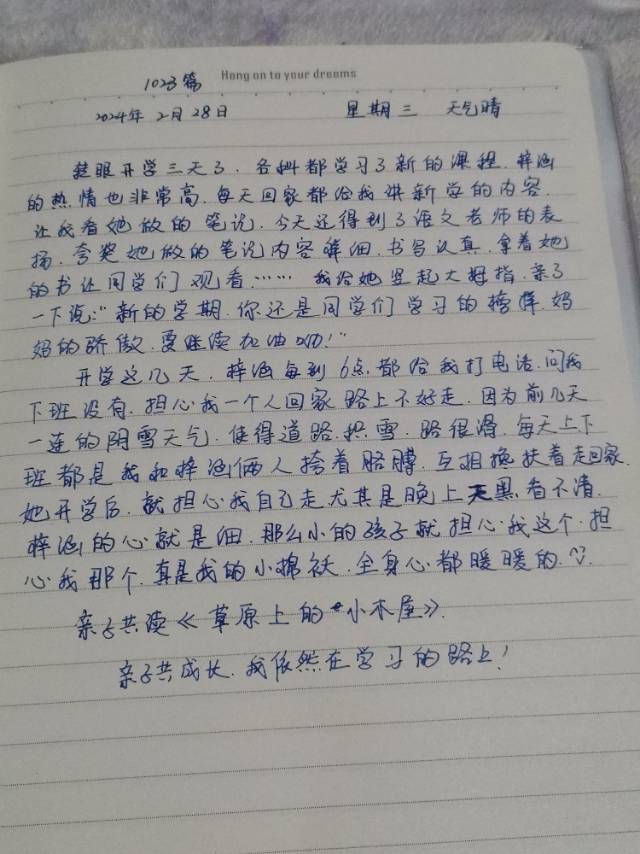 1023篇 Hang on to your dreams
2024年2月28日 星期三 天气晴
转眼开学三天了.各科都学习了新的课程.梓涵
的热情也非常高.每天回家都给我讲新学的内容.
让我看她做的笔记.今天还得到了语文老师的表
扬.夸奖她做的笔记内容详细.书写认真.拿着她
的书让同学们观看……我给她竖起大拇指.亲了
一下说:“新的学期.你还是同学们学习的榜样.妈
妈的骄傲.要继续加油呦!”
开学这几天.梓涵每到6点都给我打电话.问我
下班没有.担心我一个人回家路上不好走.因为前几天
一连的阴雪天气.使得道路积雪.路很滑.每天上下
班都是我和梓涵俩人挎着胳膊.互相搀扶着走回家.
她开学后.就担心我自己走尤其是晚上天黑看不清.
梓涵的心就是细.那么小的孩子就担心我这个.担
心我那个.真是我的小棉袄.全身心都暖暖的.
亲子共读《草原上的小木屋》.
亲子共成长.我依然在学习的路上!